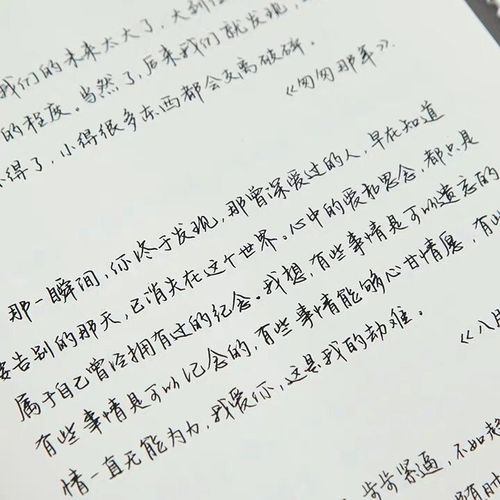 我们的未来太大了,大到
的程度。当然了,后来我们就发现,
不得了,小得很多东西都会支离破碎。
《匆匆那年》.
那一瞬间,你终于发现,那曾深爱过的人,早在知道
要告别的那天,已消失在这个世界。心中的爱和思念,都只是
属于自己曾经拥有过的纪念。我想,有些事情是可以遗忘的
有些事情是可以记念的,有些事情能够心甘情愿,有些
情一直无能为力,我爱你,这是我的劫难。
《八月
步步紧逼,不如